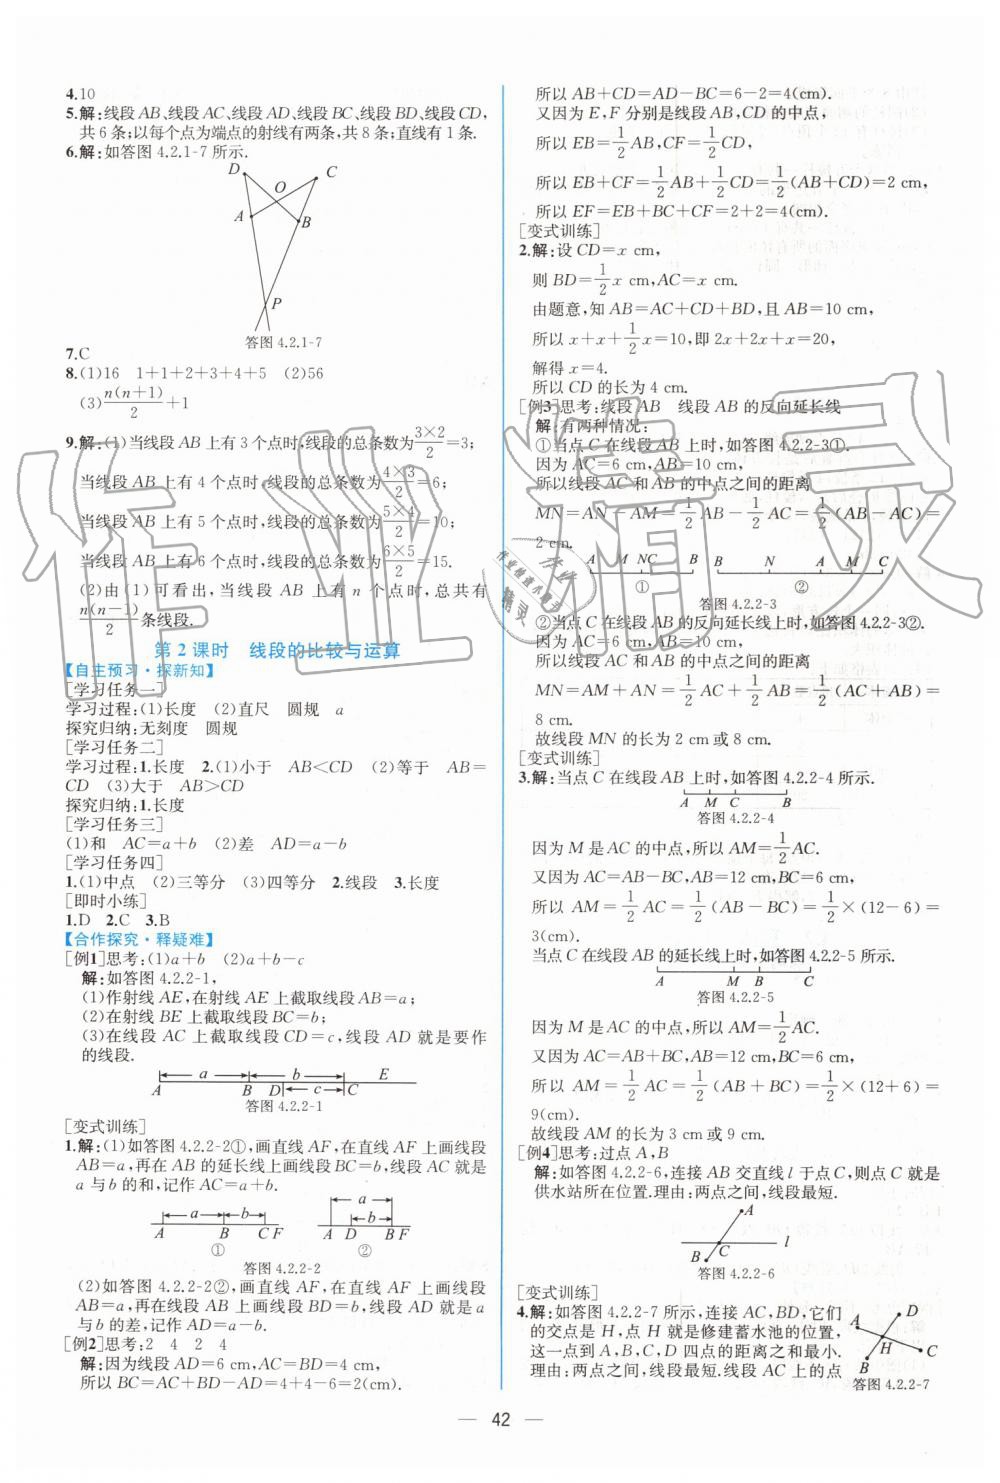 4.10
5.解:线段AB、线段AC、线段AD、线段BC、线段BD、线段CD,
共6条;以每个点为端点的射线有两条,共8条;直线有1条.
6.解:如答图4.2.1-7所示.
D C
O
A B
P
答图4.2.1-7
7.C
8.(1)16 1+1+2+3+4+5 (2)56
(3)n(n+1)/2+1
9.解:(1)当线段AB上有3个点时,线段的总条数为3×2/2=3;
当线段AB上有4个点时,线段的总条数为4×3/2=6;
当线段AB上有5个点时,线段的总条数为5×4/2=10;
当线段AB上有6个点时,线段的总条数为6×5/2=15.
(2)由(1)可看出,当线段AB上有n个点时,总共有
n(n-1)/2条线段.
第2课时 线段的比较与运算
【自主预习·探新知】
[学习任务一]
学习过程:(1)长度 (2)直尺 圆规 a
探究归纳:无刻度 圆规
[学习任务二]
学习过程:1.长度 2.(1)小于 AB<CD (2)等于 AB=
CD (3)大于 AB>CD
探究归纳:1.长度
[学习任务三]
(1)和 AC=a+b (2)差 AD=a-b
[学习任务四]
1.(1)中点 (2)三等分 (3)四等分 2.线段 3.长度
[即时小练]
1.D 2.C 3.B
【合作探究·释疑难】
[例1]思考:(1)a+b (2)a+b-c
解:如答图4.2.2-1,
(1)作射线AE,在射线AE上截取线段AB=a;
(2)在射线BE上截取线段BC=b;
(3)在线段AC上截取线段CD=c,线段AD就是要作
的线段.
a b E
A B D c C
答图4.2.2-1
[变式训练]
1.解:(1)如答图4.2.2-2①,画直线AF,在直线AF上画线段
AB=a,再在AB的延长线上画线段BC=b,线段AC就是
a与b的和,记作AC=a+b.
a b a b
A B C F A D B F
① ②
答图4.2.2-2
(2)如答图4.2.2-2②,画直线AF,在直线AF上画线段
AB=a,再在线段AB上画线段BD=b,线段AD就是a
与b的差,记作AD=a-b.
[例2]思考:2 4 2 4
解:因为线段AD=6 cm,AC=BD=4 cm,
所以BC=AC+BD-AD=4+4-6=2(cm).
所以AB+CD=AD-BC=6-2=4(cm).
又因为E,F分别是线段AB,CD的中点,
所以EB=1/2AB,CF=1/2CD,
所以EB+CF=1/2AB+1/2CD=1/2(AB+CD)=2 cm,
所以EF=EB+BC+CF=2+2=4(cm).
[变式训练]
2.解:设CD=x cm,
则BD=1/2x cm,AC=x cm.
由题意,知AB=AC+CD+BD,且AB=10 cm,
所以x+x+1/2x=10,即2x+2x+x=20,
解得x=4.
所以CD的长为4 cm.
[例3]思考:线段AB 线段AB的反向延长线
解:有两种情况:
①当点C在线段AB上时,如答图4.2.2-3①.
因为AC=6 cm,AB=10 cm,
所以线段AC和AB的中点之间的距离
MN=AN-AM=1/2AB-1/2AC=1/2(AB-AC)=
2 cm.
A M N C B B N A M C
① ②
答图4.2.2-3
②当点C在线段AB的反向延长线上时,如答图4.2.2-3②.
所以线段AC和AB的中点之间的距离
MN=AM+AN=1/2AC+1/2AB=1/2(AC+AB)=
8 cm.
故线段MN的长为2 cm或8 cm.
[变式训练]
3.解:当点C在线段AB上时,如答图4.2.2-4所示.
A M C B
答图4.2.2-4
因为M是AC的中点,所以AM=1/2AC.
又因为AC=AB-BC,AB=12 cm,BC=6 cm,
所以AM=1/2AC=1/2(AB-BC)=1/2×(12-6)=
3(cm).
当点C在线段AB的延长线上时,如答图4.2.2-5所示.
A M B C
答图4.2.2-5
因为M是AC的中点,所以AM=1/2AC.
又因为AC=AB+BC,AB=12 cm,BC=6 cm,
所以AM=1/2AC=1/2(AB+BC)=1/2×(12+6)=
9(cm).
故线段AM的长为3 cm或9 cm.
[例4]思考:过点A,B
解:如答图4.2.2-6,连接AB交直线l于点C,则点C就是
供水站所在位置.理由:两点之间,线段最短.
A
l
B C
答图4.2.2-6
[变式训练]
4.解:如答图4.2.2-7所示,连接AC,BD,它们
的交点是H,点H就是修建蓄水池的位置,
这一点到A,B,C,D四点的距离之和最小.
理由:两点之间,线段最短.线段AC上的点
A D
H
B C
答图4.2.2-7
作业精灵
— 42 —